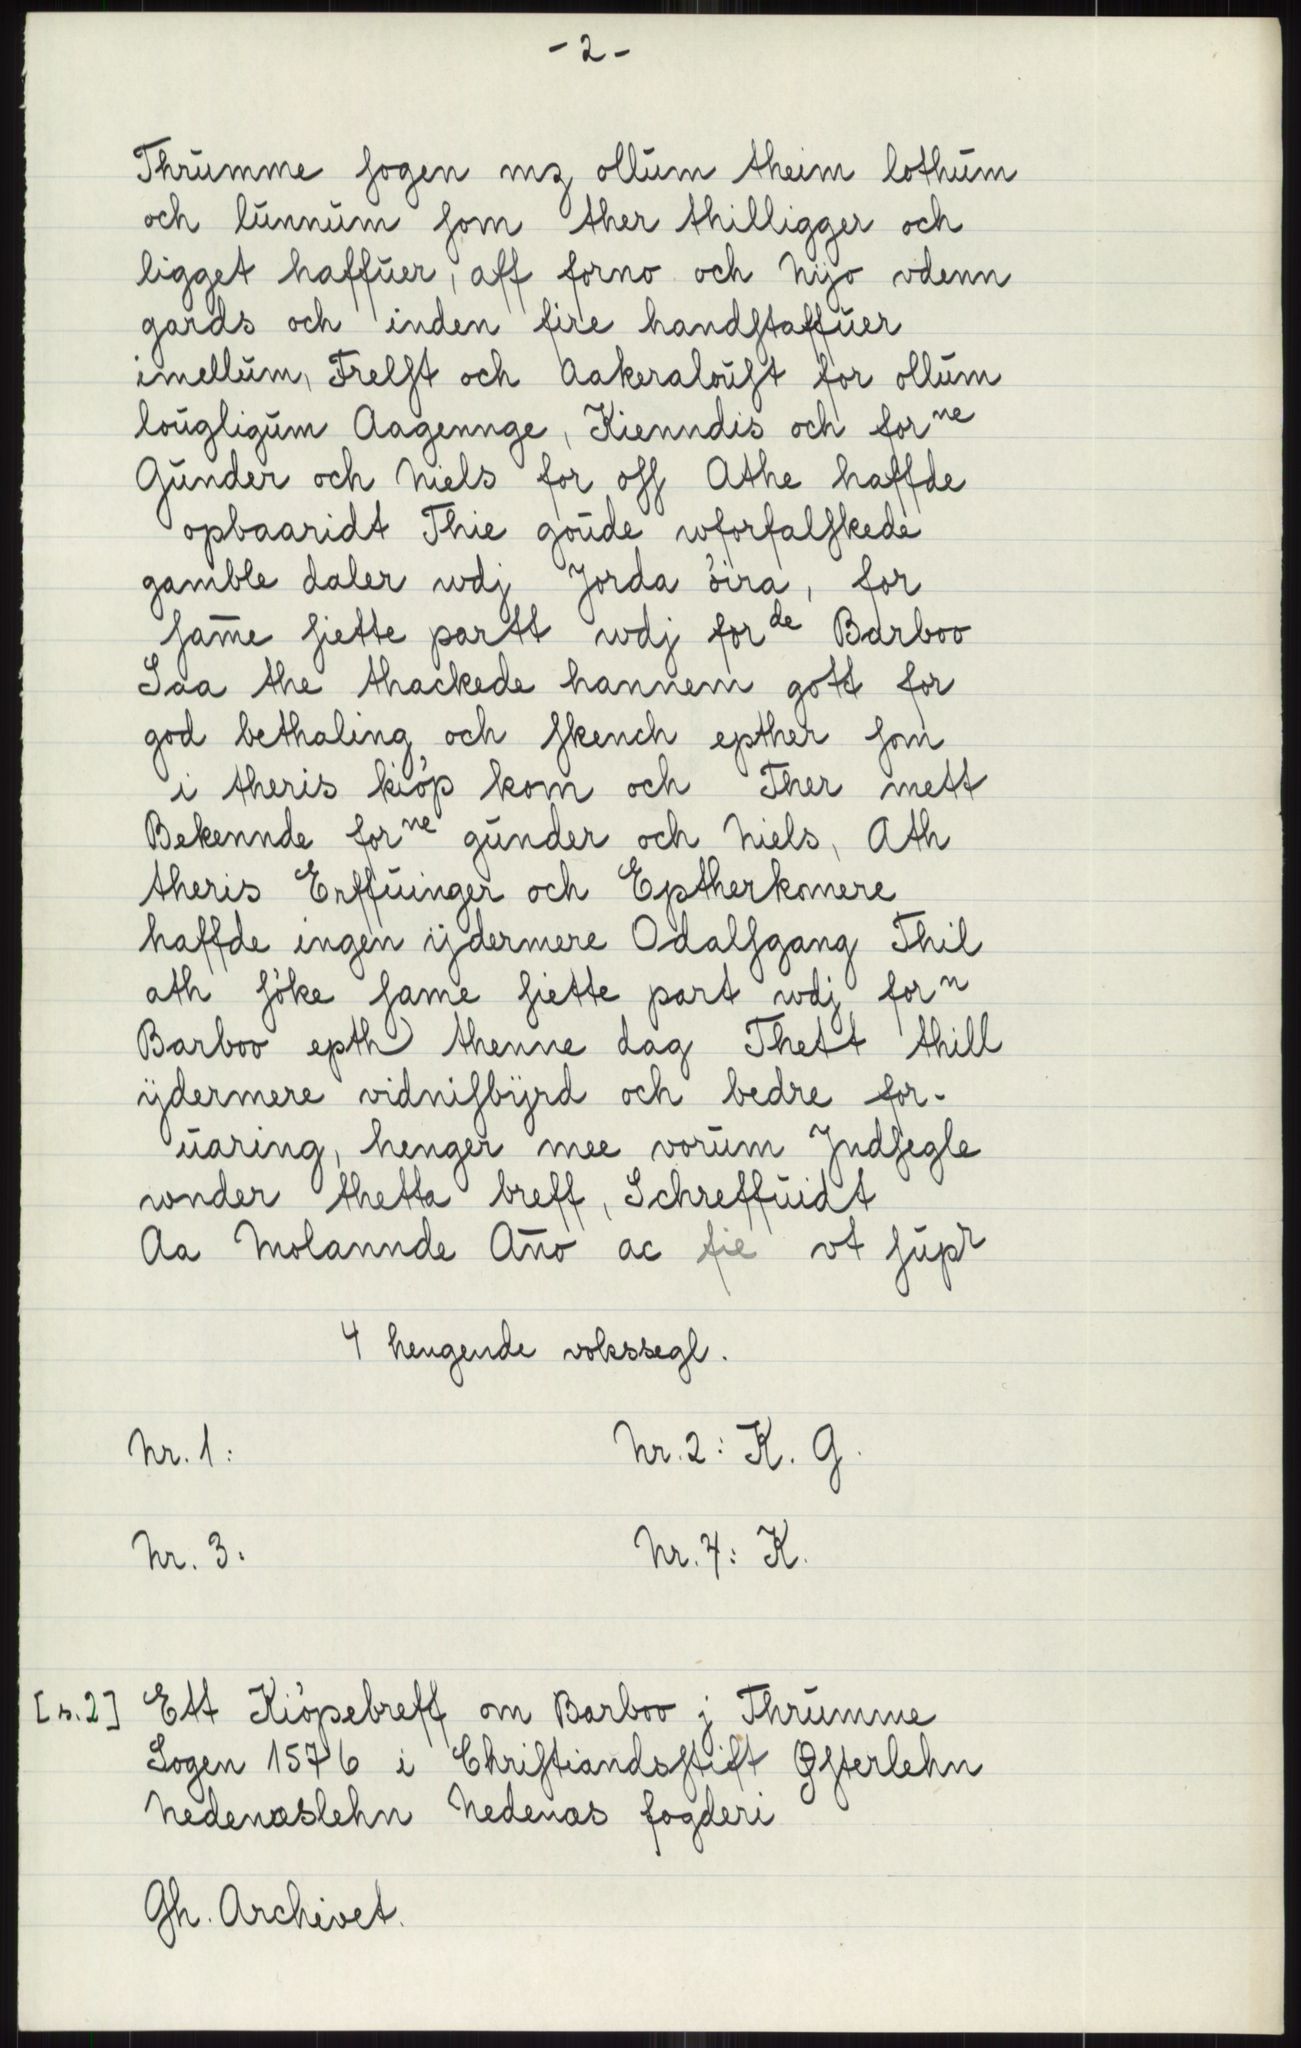 - 2 -
Thrumme sogen mz ollum theim lothum
och lunnum som ther thilligger och
ligget haffuer, aff forno och Nijo vdenn
gards och inden fire handstaffuer
imellum, Frelst och Aakeraloust for ollum
lougligum Aagennge, Kienndis och forne
Gunder och Niels for oss Athe haffde
opbaaridt Thie goude wforfalskede
gamble daler wdj Jorda öira, for
same siette partt wdj forde Barboo
Saa the thackede hannem gott for
god bethaling och skench epther som
i theris kiöp kom och Ther mett
Bekennde forne gunder och Niels, Ath
theris Erffuinger och Eptherkomere
haffde ingen ijdermere Odalsgang Thil
ath söke same siette part wdj forn
Barboo epth thenne dag Thett thill
ijdermere vidnisbyrd och bedre for-
uaring, henger mee vorum Jndsegle
wnder thetta breff, Schreffuidt
Aa Molannde Ano ac fie vt supr
4 hengende vokssegl.
Nr. 1: Nr. 2: K. G.
Nr. 3: Nr. 4: K.
[s.2] Ett Kiöpebreff om Barboo j Thrumme
Sogen 1576 i Christiandsstift Østerlehn
Nedenæslehn Nedenæs fogderi
Gh. Archivet.